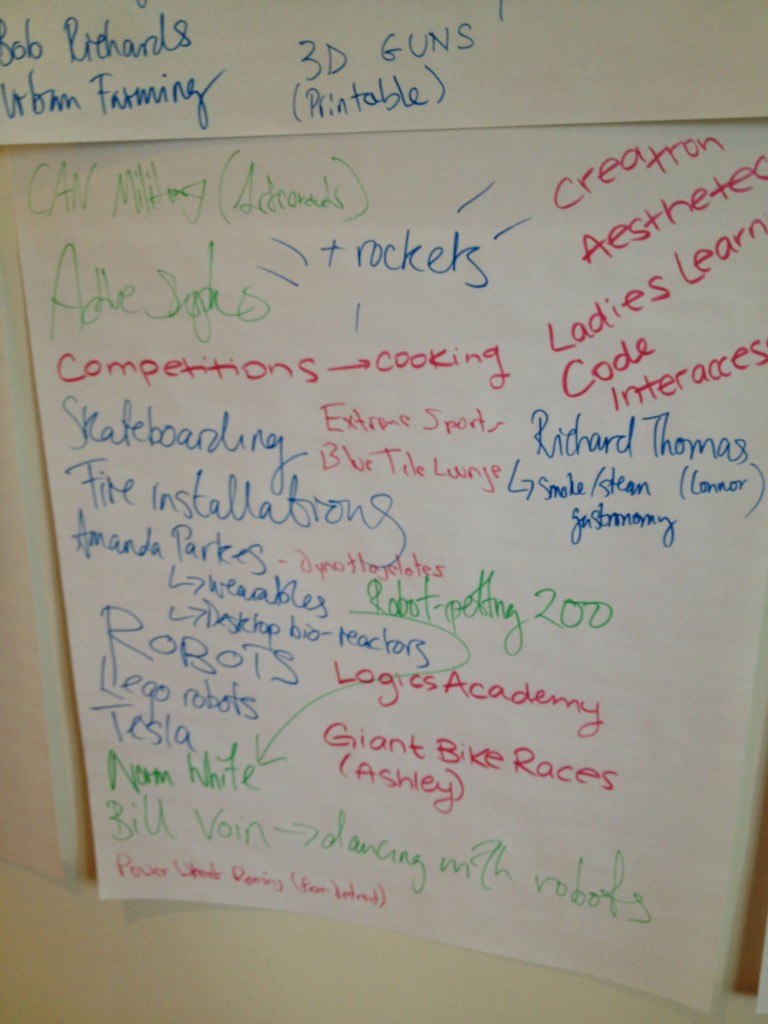 Bob Richards
Urban Farming
3D GUNS
(Printable)
CAN Military (Astronauts)
+ rockets
Creatron
Aesthetec
Ladies Learni
Code
Interaccess
Active
Competitions → cooking
Skateboarding
Extreme Sports
Blue Tile Lounge
Richard Thomas
↳ smoke/steam (Connor)
gastronomy
Fire installations
Amanda Parkes -
↳ wearables
↳ Desktop bio-reactors
Robot-petting zoo
ROBOTS
Lego robots
Logics Academy
Tesla
Norm White
Giant Bike Races
(Ashley)
Bill Voin → dancing with robots
Power